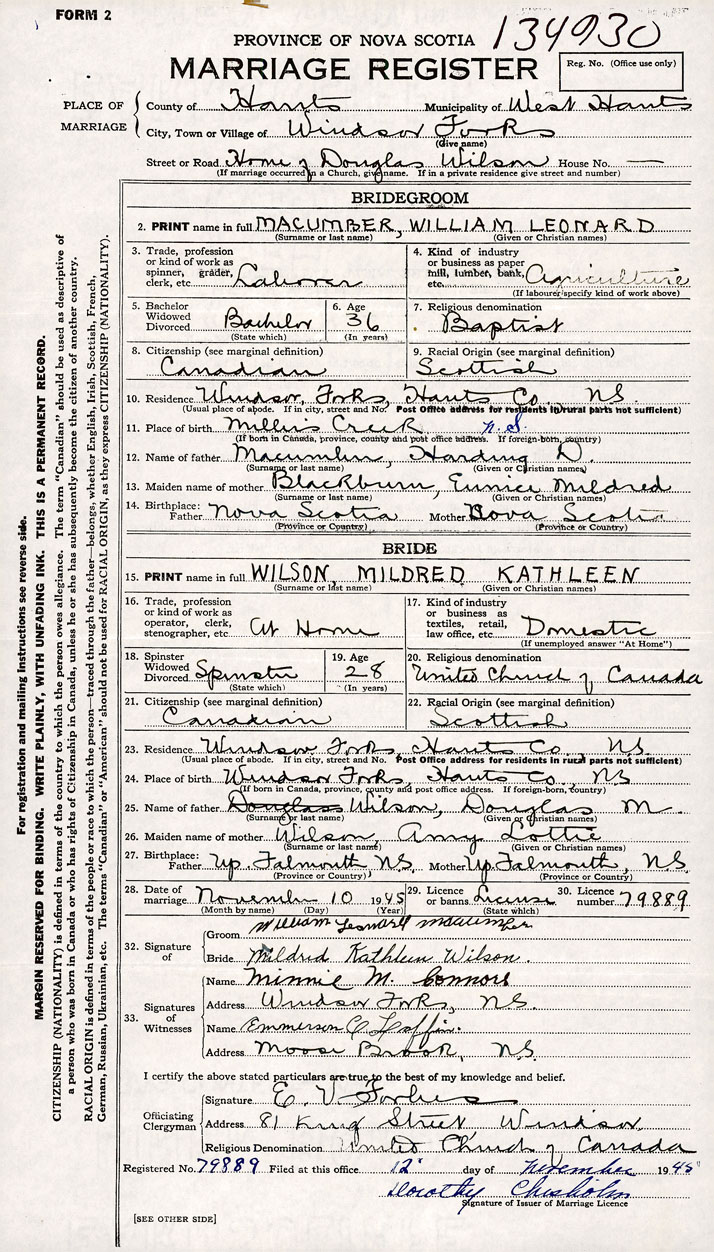 FORM 2
134930
PROVINCE OF NOVA SCOTIA
MARRIAGE REGISTER
Reg. No. (Office use only)
PLACE OF MARRIAGE
County of Hants Municipality of West Hants
City, Town or Village of Windsor Forks
(Give name)
Street or Road Home of Douglas Wilson House No. —
(If marriage occurred in a Church, give name. If in a private residence give street and number)
BRIDEGROOM
2. PRINT name in full MACUMBER, WILLIAM LEONARD
(Surname or last name) (Given or Christian names)
3. Trade, profession or kind of work as spinner, grader, clerk, etc. Laborer
4. Kind of industry or business as paper mill, lumber, bank, etc. Agriculture
(If labourer specify kind of work above)
5. Bachelor Widowed Divorced Bachelor
(State which)
6. Age 36
(In years)
7. Religious denomination Baptist
8. Citizenship (see marginal definition) Canadian
9. Racial Origin (see marginal definition) Scottish
10. Residence Windsor Forks, Hants Co., NS.
(Usual place of abode. If in city, street and No. Post Office address for residents in rural parts not sufficient)
11. Place of birth Miller's Creek N.S.
(If born in Canada, province, county and post office address. If foreign-born, country)
12. Name of father Macumber, Harding D.
(Surname or last name) (Given or Christian names)
13. Maiden name of mother Blackburn, Eunice Mildred
(Surname or last name) (Given or Christian names)
14. Birthplace: Father Nova Scotia Mother Nova Scotia
(Province or Country) (Province or Country)
BRIDE
15. PRINT name in full WILSON, MILDRED KATHLEEN
(Surname or last name) (Given or Christian names)
16. Trade, profession or kind of work as operator, clerk, stenographer, etc. At Home
17. Kind of industry or business as textiles, retail, law office, etc. Domestic
(If unemployed answer "At Home")
18. Spinster Widowed Divorced Spinster
(State which)
19. Age 28
(In years)
20. Religious denomination United Church of Canada
21. Citizenship (see marginal definition) Canadian
22. Racial Origin (see marginal definition) Scottish
23. Residence Windsor Forks, Hants Co., NS.
(Usual place of abode. If in city, street and No. Post Office address for residents in rural parts not sufficient)
24. Place of birth Windsor Forks, Hants Co., NS
(If born in Canada, province, county and post office address. If foreign-born, country)
25. Name of father Douglass Wilson, Douglas M.
(Surname or last name) (Given or Christian names)
26. Maiden name of mother Wilson, Amy Lottie
(Surname or last name) (Given or Christian names)
27. Birthplace: Father Up. Falmouth NS. Mother Up Falmouth, NS.
(Province or Country) (Province or Country)
28. Date of marriage November 10 1945
(Month by name) (Day) (Year)
29. Licence or banns License
(State which)
30. Licence number 79889
32. Signature of
Groom William Leonard Macumber
Bride Mildred Kathleen Wilson.
33. Signatures of Witnesses
Name Minnie M. Connors
Address Windsor Forks, NS.
Name Emmerson C Loffin.
Address Moose Brook, NS.
I certify the above stated particulars are true to the best of my knowledge and belief.
Officiating Clergyman
Signature E. V. Forbes
Address 81 King Street Windsor
Religious Denomination United Church of Canada
Registered No. 79889 Filed at this office 12" day of November 1945"
Dorothy Chisholm
Signature of Issuer of Marriage Licence
[SEE OTHER SIDE]
For registration and mailing instructions see reverse side.
MARGIN RESERVED FOR BINDING. WRITE PLAINLY, WITH UNFADING INK. THIS IS A PERMANENT RECORD.
CITIZENSHIP (NATIONALITY) is defined in terms of the country to which the person owes allegiance. The term "Canadian" should be used as descriptive of
a person who was born in Canada or who has rights of Citizenship in Canada, unless he or she has subsequently become the citizen of another country.
RACIAL ORIGIN is defined in terms of the people or race to which the person—traced through the father—belongs, whether English, Irish, Scottish, French,
German, Russian, Ukrainian, etc. The terms "Canadian" or "American" should not be used for RACIAL ORIGIN, as they express CITIZENSHIP (NATIONALITY).